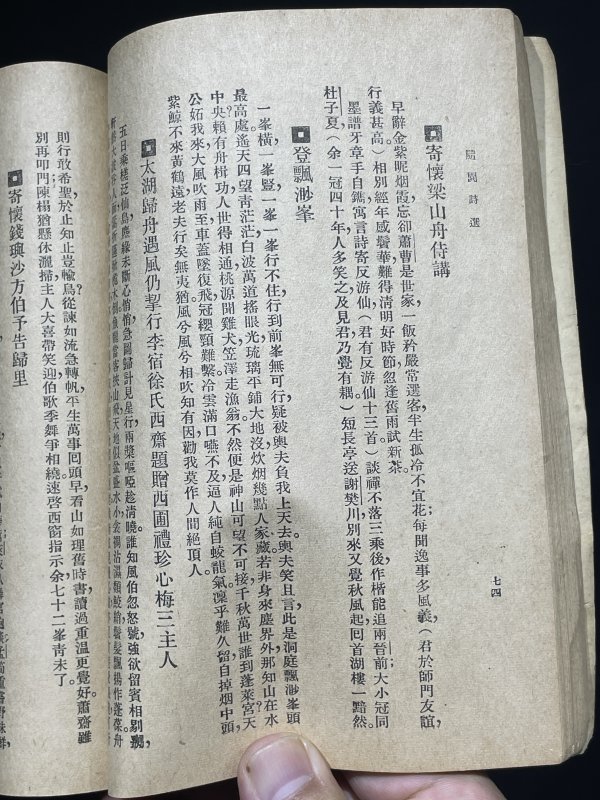 隨園詩選
七四
寄懷梁山舟侍講
早辭金紫呢烟霞,忘卻蕭曹是世家。一飯矜嚴常選客,半生孤冷不宜花。每聞逸事多風義,(君於師門友誼,
行義甚高。)相別經年感鬢華。難得清明好時節,忽逢舊雨試新茶。
墨譜牙章手自鐫,寓言詩寄反游仙。(君有反游仙十三首)談禪不落三乘後,作楷能追兩晉前。大小冠同
杜子夏,(余一冠四十年,人多笑之,及見君,乃覺有耦。)短長亭送謝樊川。別來又覺秋風起,回首湖樓一黯然。
登飄渺峯
一峯橫,一峯豎,一峯行不住,行到前峯無可行,疑被輿夫負我上天去。輿夫笑且言,此是洞庭飄渺峯頭
最高處。遙天四望靑茫茫,白波萬道搖眼光。琉璃平鋪大地沒,炊烟幾點人家藏。若非身來塵界外,那知山在水
中央。賴有舟楫功,人世得相通,桃源聞雞犬,笠澤走漁翁。不然便是神山可望不可接,千秋萬世誰到蓬萊宮?天
公妬我來,大風吹雨至,車蓋墜復飛,冠纓頸難繫。冷雲滿口嚥不及,逼人純自蛟龍氣。凜乎難久留,自掉烟中頭,
紫鯨不來黃鶴遠,老夫行矣無夷猶。風兮風兮相吹知有因,勸我莫作人間絕頂人。
太湖歸舟遇風仍挈行李宿徐氏西齋題贈西圃禮珍心梅三主人
五日乘槎泛仙島,塵緣未斷心悄悄。急圖歸計見星行,兩槳嘔啞趁清曉。誰知風伯忽怒號,強欲留賓相剔嬲。
天地似盆盛水
則行敢希聖,於止知止豈輸鳥?從諫如流急轉帆,平生萬事回頭早。看山如理舊時書,讀過重溫更覺好。蕭齋雖
別再叩門,陳榻猶懸休灑掃。主人大喜帶笑迎,伯歌季舞爭相繞。速啓西窗指示余,七十二峯靑未了。
寄懷錢璵沙方伯予告歸里